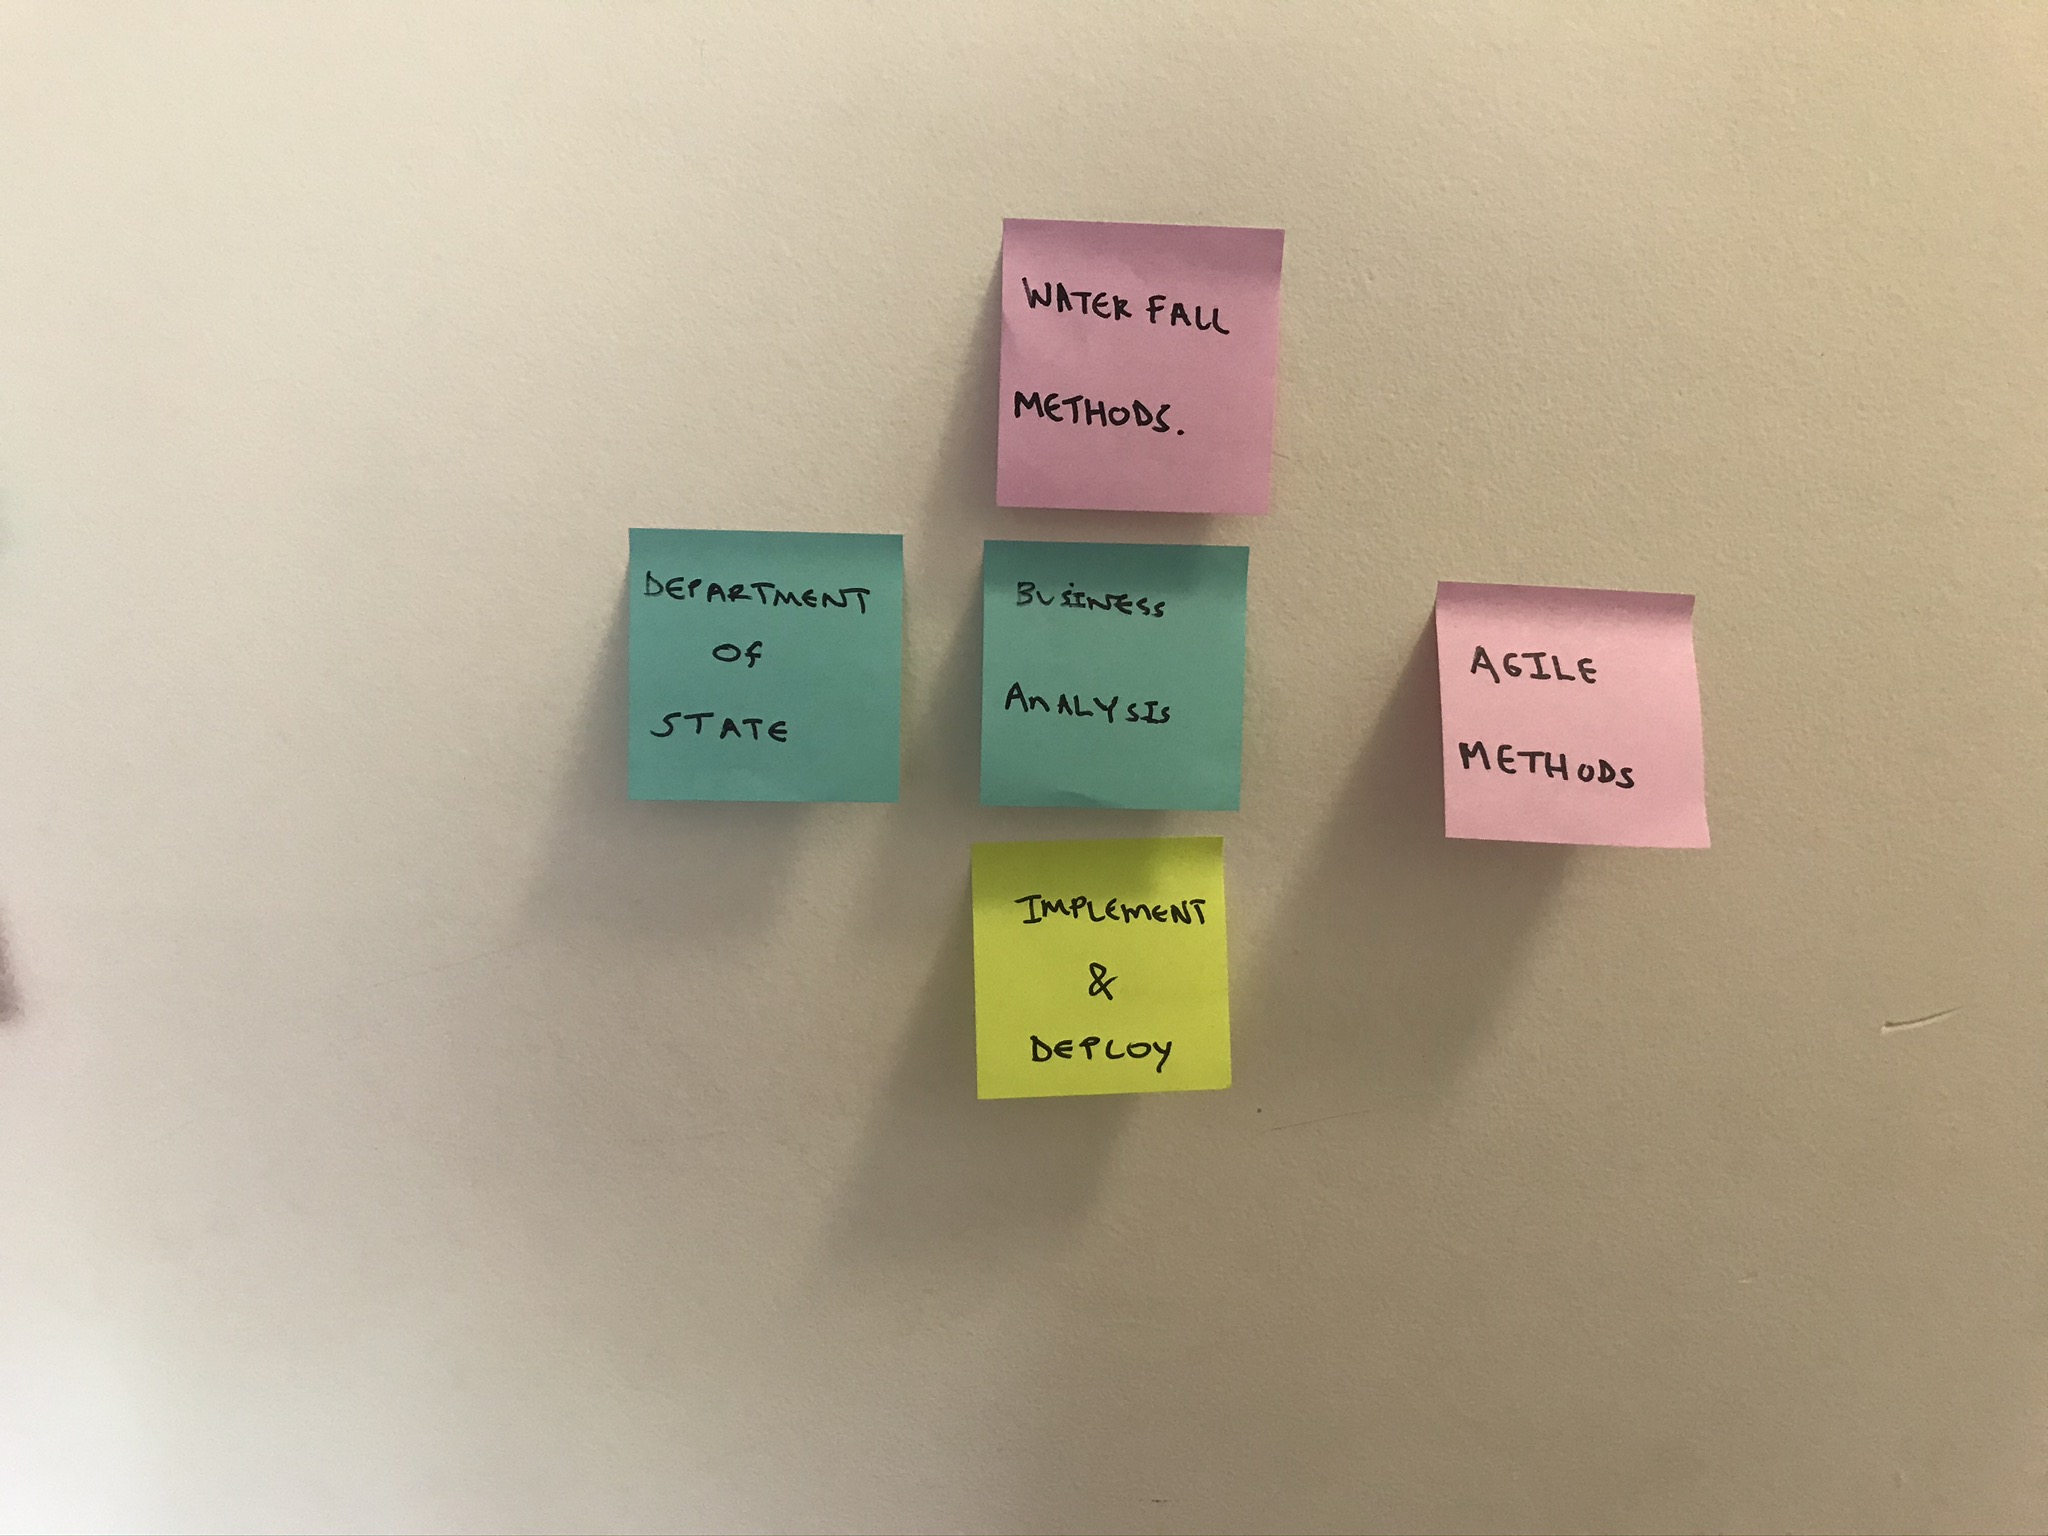 WATER FALL
METHODS.
DEPARTMENT
Of
STATE
BUSINESS
ANALYSIS
AGILE
METHODS
IMPLEMENT
&
DEPLOY